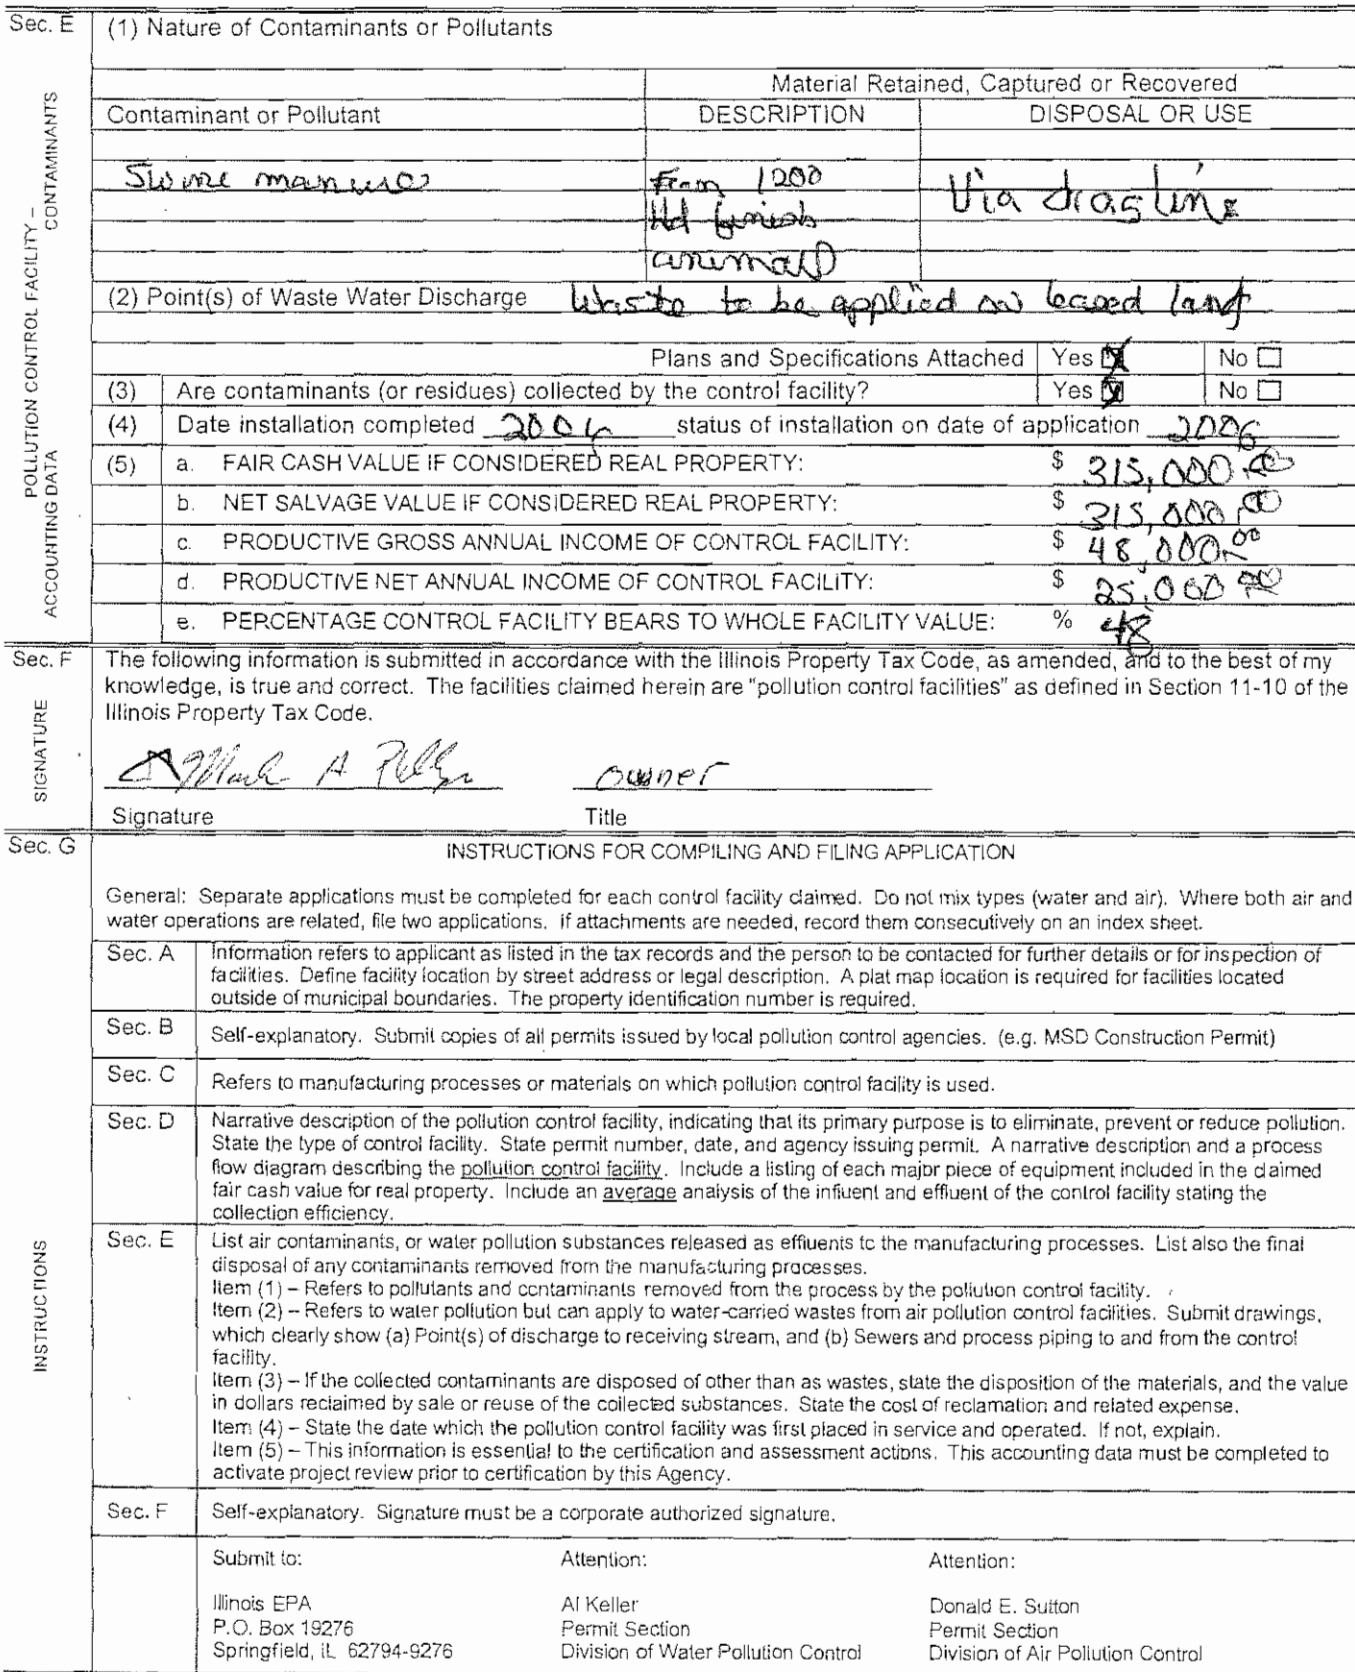 Sec. E
(1) Nature of Contaminants or Pollutants
Material Retained, Captured or Recovered
Contaminant or Pollutant DESCRIPTION DISPOSAL OR USE
Swine manure From 1200 Via dragline
Hd finish
animals
(2) Point(s) of Waste Water Discharge Waste to be applied on leased land
POLLUTION CONTROL FACILITY –
CONTAMINANTS
ACCOUNTING DATA
Plans and Specifications Attached Yes ☒ No ☐
(3) Are contaminants (or residues) collected by the control facility? Yes ☒ No ☐
(4) Date installation completed status of installation on date of application 2006
(5) a. FAIR CASH VALUE IF CONSIDERED REAL PROPERTY: $ 315,000.00
b. NET SALVAGE VALUE IF CONSIDERED REAL PROPERTY: $ 315,000.00
c. PRODUCTIVE GROSS ANNUAL INCOME OF CONTROL FACILITY: $ 48,000.00
d. PRODUCTIVE NET ANNUAL INCOME OF CONTROL FACILITY: $ 25,000.00
e. PERCENTAGE CONTROL FACILITY BEARS TO WHOLE FACILITY VALUE: % 48
Sec. F
SIGNATURE
The following information is submitted in accordance with the Illinois Property Tax Code, as amended, and to the best of my
knowledge, is true and correct. The facilities claimed herein are "pollution control facilities" as defined in Section 11-10 of the
Illinois Property Tax Code.
Mark A owner
Signature Title
Sec. G
INSTRUCTIONS
INSTRUCTIONS FOR COMPILING AND FILING APPLICATION
General: Separate applications must be completed for each control facility claimed. Do not mix types (water and air). Where both air and
water operations are related, file two applications. If attachments are needed, record them consecutively on an index sheet.
Sec. A Information refers to applicant as listed in the tax records and the person to be contacted for further details or for inspection of
facilities. Define facility location by street address or legal description. A plat map location is required for facilities located
outside of municipal boundaries. The property identification number is required.
Sec. B Self-explanatory. Submit copies of all permits issued by local pollution control agencies. (e.g. MSD Construction Permit)
Sec. C Refers to manufacturing processes or materials on which pollution control facility is used.
Sec. D Narrative description of the pollution control facility, indicating that its primary purpose is to eliminate, prevent or reduce pollution.
State the type of control facility. State permit number, date, and agency issuing permit. A narrative description and a process
flow diagram describing the pollution control facility. Include a listing of each major piece of equipment included in the claimed
fair cash value for real property. Include an average analysis of the influent and effluent of the control facility stating the
collection efficiency.
Sec. E List air contaminants, or water pollution substances released as effluents to the manufacturing processes. List also the final
disposal of any contaminants removed from the manufacturing processes.
Item (1) – Refers to pollutants and contaminants removed from the process by the pollution control facility.
Item (2) – Refers to water pollution but can apply to water-carried wastes from air pollution control facilities. Submit drawings,
which clearly show (a) Point(s) of discharge to receiving stream, and (b) Sewers and process piping to and from the control
facility.
Item (3) – If the collected contaminants are disposed of other than as wastes, state the disposition of the materials, and the value
in dollars reclaimed by sale or reuse of the collected substances. State the cost of reclamation and related expense.
Item (4) – State the date which the pollution control facility was first placed in service and operated. If not, explain.
Item (5) – This information is essential to the certification and assessment actions. This accounting data must be completed to
activate project review prior to certification by this Agency.
Sec. F Self-explanatory. Signature must be a corporate authorized signature.
Submit to: Attention: Attention:
Illinois EPA Al Keller Donald E. Sutton
P.O. Box 19276 Permit Section Permit Section
Springfield, IL 62794-9276 Division of Water Pollution Control Division of Air Pollution Control